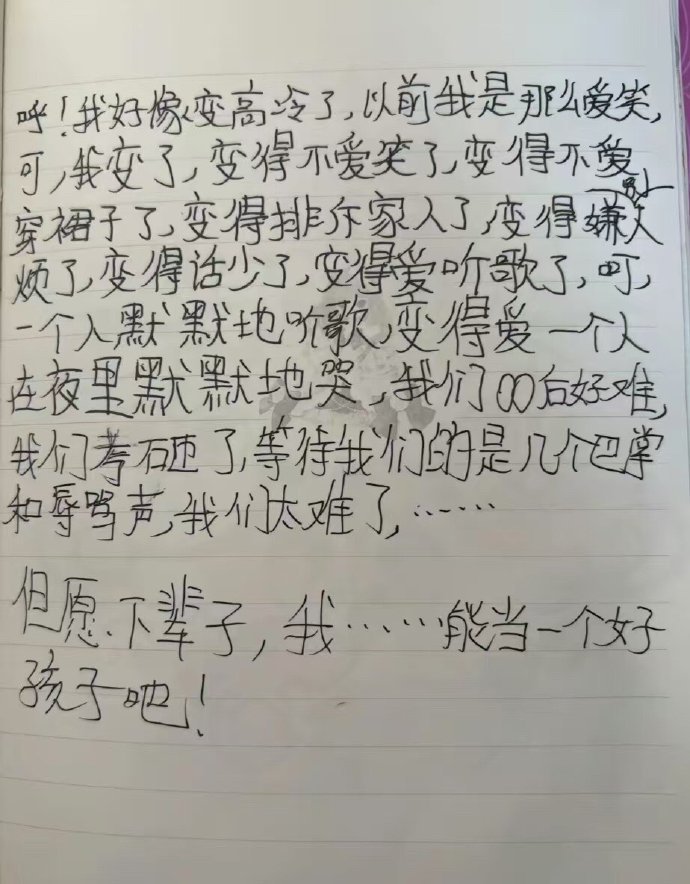 呼！我好像变高冷了，以前我是那么爱笑，
可，我变了，变得不爱笑了，变得不爱
穿裙子了，变得排斥家人了，变得嫌别人
烦了，变得话少了，变得爱听歌了，呵，
一个人默默地听歌，变得爱一个人
在夜里默默地哭，我们00后好难，
我们考砸了，等待我们的是几个巴掌
和辱骂声，我们太难了，……
但愿下辈子，我……能当一个好
孩子吧！